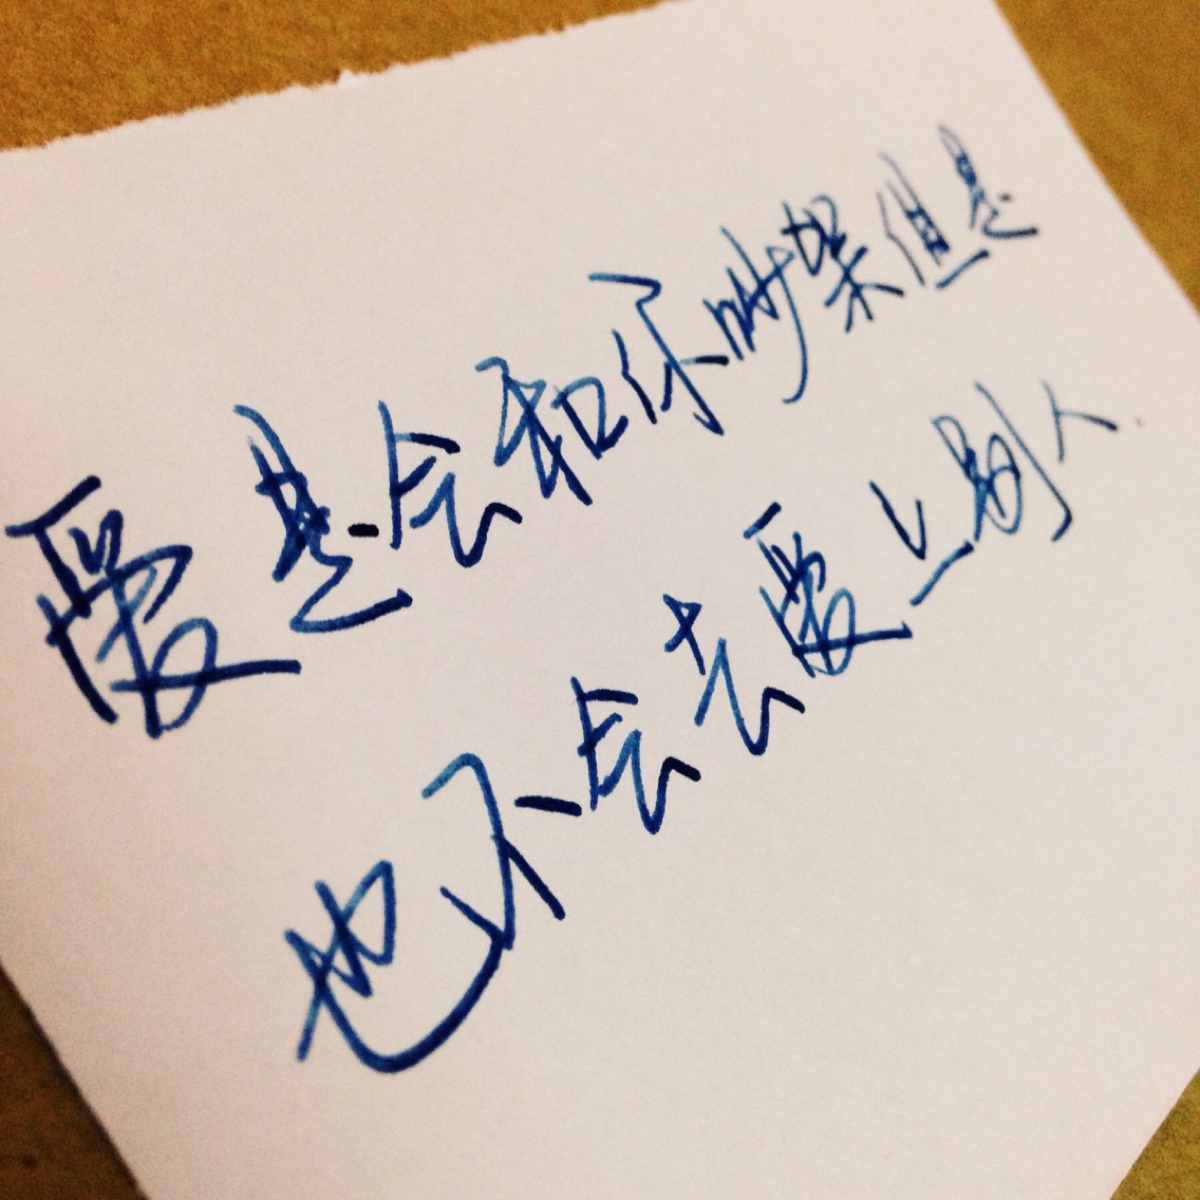 爱是会和你吵架但是
也不会去爱上别人